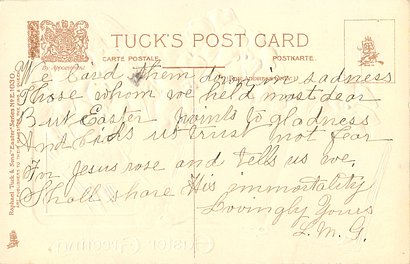 TUCK'S POST CARD
By Appointment
CARTE POSTALE
POSTKARTE
We laid them down in sadness
Those whom we held most dear
But Easter points to gladness
And bids us trust not fear
For Jesus rose and tells us we
Shall share His immortality
Lovingly Yours
L. M. G.
Raphael Tuck & Sons' "Easter" Series No
Easter Greeting